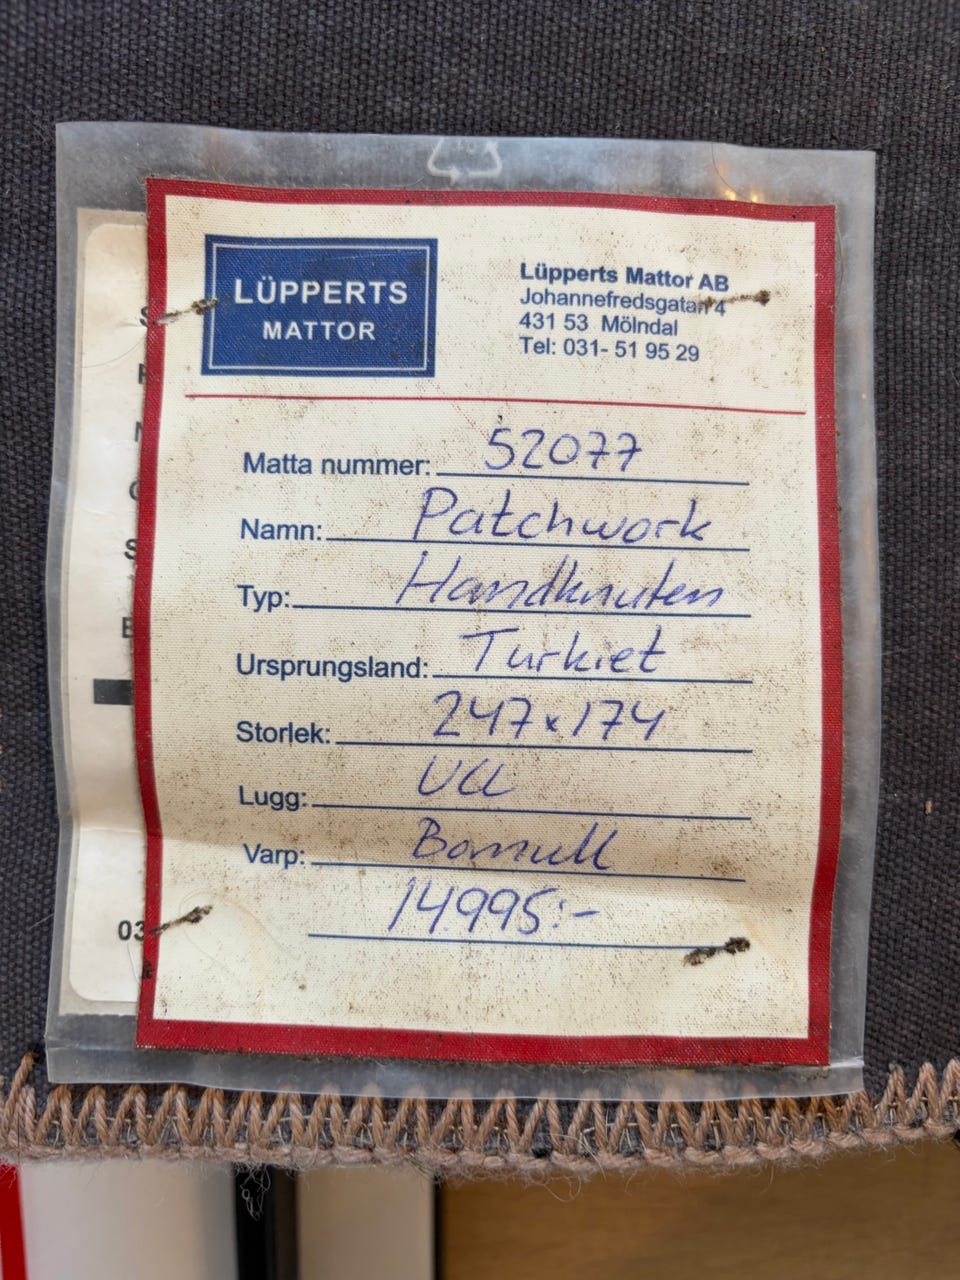 LÜPPERTS
MATTOR
Lüpperts Mattor AB
Johannefredsgatan 4
431 53 Mölndal
Tel: 031- 51 95 29
Matta nummer: 52077
Namn: Patchwork
Typ: Handknuten
Ursprungsland: Turkiet
Storlek: 247x174
Lugg: Ull
Varp: Bomull
14.995:-
03